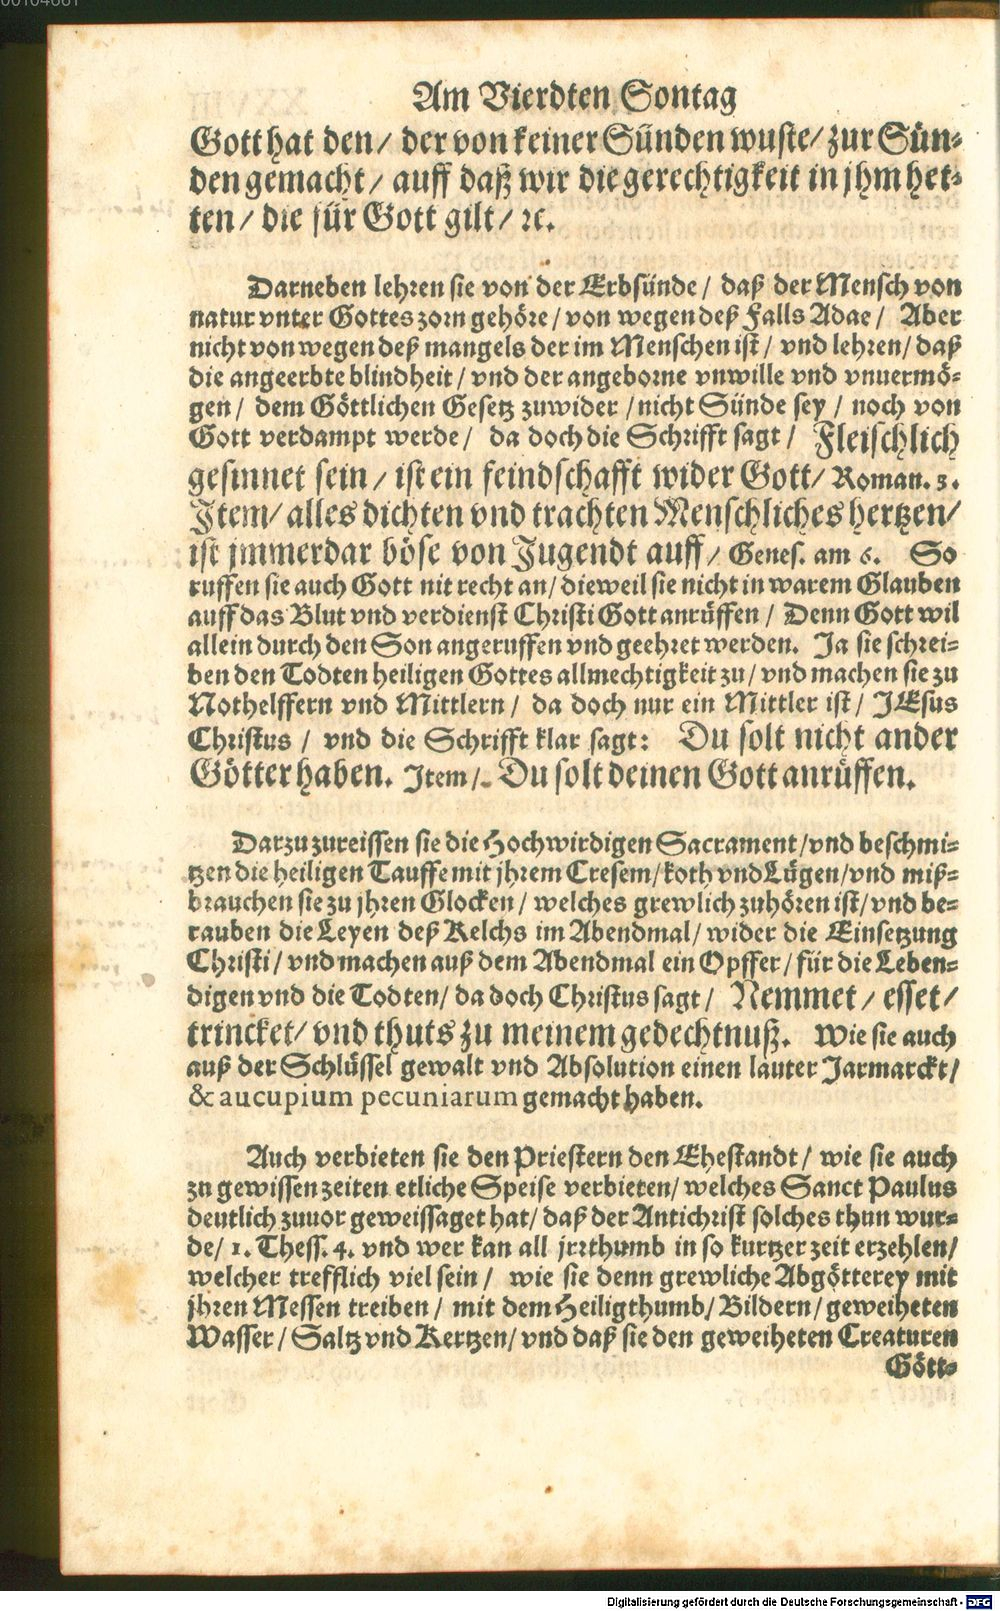 Am Vierdten Sontag
Gott hat den/ der von keiner Sünden wuste/ zur Sün-
den gemacht/ auff daß wir die gerechtigkeit in jhm het-
ten/ die für Gott gilt/ ꝛc.
Darneben lehren sie von der Erbsünde/ daß der Mensch von
natur vnter Gottes zorn gehöre/ von wegen deß Falls Adae/ Aber
nicht von wegen deß mangels der im Menschen ist/ vnd lehren/ daß
die angeerbte blindheit/ vnd der angeborne vnwille vnd vnuermö-
gen/ dem Göttlichen Gesetz zuwider/ nicht Sünde sey/ noch von
Gott verdampt werde/ da doch die Schrifft sagt/ Fleischlich
gesinnet sein/ ist ein feindschafft wider Gott/ Roman. 3.
Item/ alles dichten vnd trachten Menschliches hertzen/
ist jmmerdar böse von Jugendt auff/ Genes. am 6. So
ruffen sie auch Gott nit recht an/ dieweil sie nicht in warem Glauben
auff das Blut vnd verdienst Christi Gott anrüffen/ Denn Gott wil
allein durch den Son angeruffen vnd geehret werden. Ja sie schrei-
ben den Todten heiligen Gottes allmechtigkeit zu/ vnd machen sie zu
Nothelffern vnd Mittlern/ da doch nur ein Mittler ist/ JEsus
Christus/ vnd die Schrifft klar sagt: Du solt nicht ander
Götter haben. Item/ Du solt deinen Gott anrüffen.
Darzu zureissen sie die Hochwirdigen Sacrament/ vnd beschmi-
tzen die heiligen Tauffe mit jhrem Cresem/ koth vnd Lügen/ vnd miß-
brauchen sie zu jhren Glocken/ welches grewlich zuhören ist/ vnd be-
rauben die Leyen deß Kelchs im Abendmal/ wider die Einsetzung
Christi/ vnd machen auß dem Abendmal ein Opffer/ für die Leben-
digen vnd die Todten/ da doch Christus sagt/ Nemmet/ esset/
trincket/ vnd thuts zu meinem gedechtnuß. Wie sie auch
auß der Schlüssel gewalt vnd Absolution einen lauter Jarmarckt/
& aucupium pecuniarum gemacht haben.
Auch verbieten sie den Priestern den Ehestandt/ wie sie auch
zu gewissen zeiten etliche Speise verbieten/ welches Sanct Paulus
deutlich zuuor geweissaget hat/ daß der Antichrist solches thun wur-
de/ 1. Thess. 4. vnd wer kan all jrrthumb in so kurtzer zeit erzehlen/
welcher trefflich viel sein/ wie sie denn grewliche Abgötterey mit
jhren Messen treiben/ mit dem Heiligthumb/ Bildern/ geweiheten
Wasser/ Saltz vnd Kertzen/ vnd daß sie den geweiheten Creaturen
Gött-
Digitalisierung gefördert durch die Deutsche Forschungsgemeinschaft - DFG